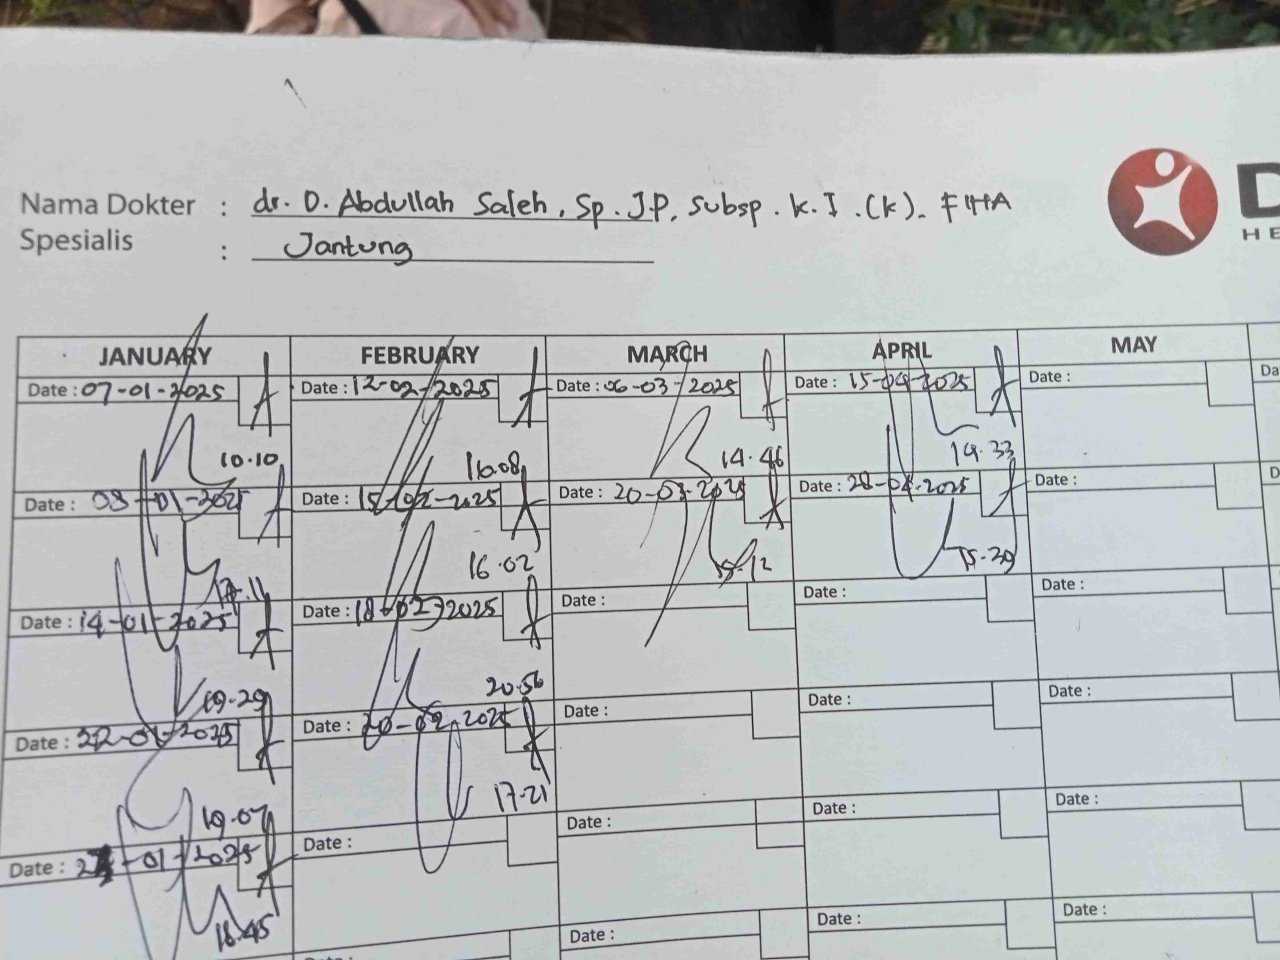 Nama Dokter : dr. D. Abdullah Saleh, Sp. J.P, Subsp. K.I. (K). FIHA
Spesialis : Jantung
D
HE
JANUARY FEBRUARY MARCH APRIL MAY
Date : 07-01-2025 Date : 12-02-2025 Date : 06-03-2025 Date : 15-04-2025 Date : Da
10.10 16.08 14.46 14.33
Date : 08-01-2025 Date : 15-02-2025 Date : 20-03-2025 Date : 28-04-2025 Date :
16.02 15.12 15.39
Date : 14-01-2025 Date : 18-02-2025 Date : Date : Date :
19.29 20.56
Date : 22-01-2025 Date : 20-02-2025 Date : Date : Date :
19.07 17.21
Date : -01-2025 Date : Date : Date : Date :
16.45
Date : Date : Date : Date :